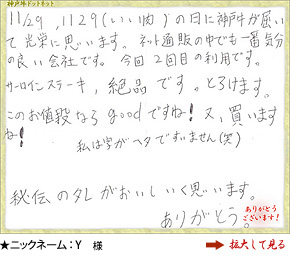 神戸牛ドットネット
11/29 , 1129(いい肉)の日に神戸牛が届い
て光栄に思います。ネット通販の中でも一番気分
の良い会社です。今回2回目の利用です。
サーロインステーキ,絶品です。とろけます。
このお値段なら goodですね! 又,買います
ね!
私は字がヘタですいません(笑)
秘伝のタレがおいしいく思います。
ありがとう。
ありがとう
ございます!
★ニックネーム:Y 様
拡大して見る